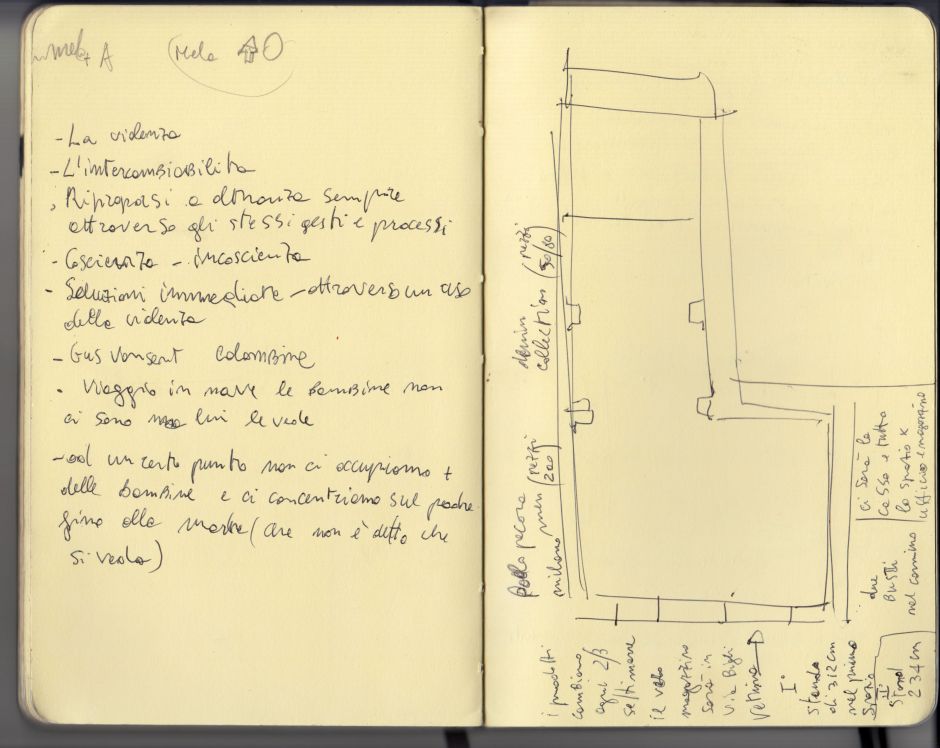 A
Mela 0
- La violenza
- L'intercambiabilità
; Riproporsi a oltranza sempre
attraverso gli stessi gesti e processi
- Coscienza - incoscienza
- Soluzioni immediate - attraverso un uso
della violenza
- Gus Vansent Colombine
- Viaggio in nave le bambine non
ci sono lui le vede
- ad un certo punto non ci occupiamo +
delle bambine e ci concentriamo sul padre
fino alla morte (che non è detto che
si veda)
denim
collection (pezzi
50/80)
Paolo pecora
milano men (pezzi
200)
i prodotti
cambiano
ogni 2/3
settimane
il vero
magazzino
sarà in
via Bigli
Vetrina
I°
stender
di 312 cm
nel primo
spazio
II°
stand
234 cm
due
BUSTI
nel camino
ci sarà la
cassa e tutto
lo spazio x
ufficio e magazzino